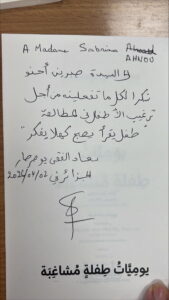 A Madame Sabrina
AHNOU
السيدة صبرين أحنو
شكرا لكل ما تفعلينه من أجل
ترغيب الأطفال في المطالعة
"طفل يقرأ يصبح كهلا يفكر"
سعاد الفقي بوصرصار
الجزائر في 2024/04/02
يوميّاتُ طِفلةٍ مُشاغِبَة